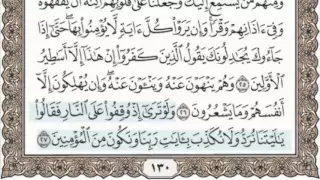 ومنهم من يستمع إليك وجعلنا على قلوبهم أكنة أن يفقهوه
وفىٓ ءاذانهم وقرا وإن يروا كل ءاية لا يؤمنوا بها حتىٓ إذا
جآءوك يجٰدلونك يقول الذين كفروٓا إن هٰذآ إلآ أسٰطير
الأولين ٢٥ وهم ينهون عنه وينـٔون عنه وإن يهلكون إلآ
أنفسهم وما يشعرون ٢٦ ولو ترىٓ إذ وقفوا على النار فقالوا
يٰليتنا نرد ولا نكذب بـٔايٰت ربنا ونكون من المؤمنين ٢٧
١٣٠